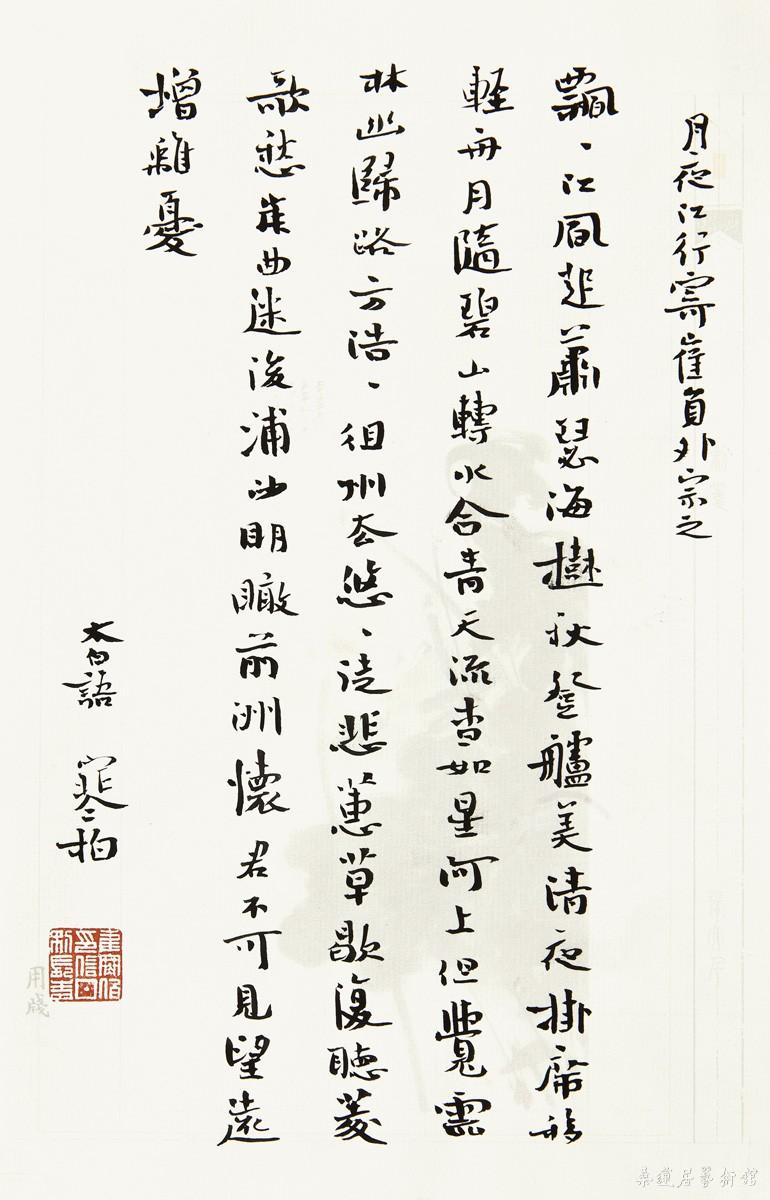 月夜江行寄崔員外宗之
飄、江風起蕭瑟海樹秋登艫美清夜掛席移
輕舟月隨碧山轉水合青天流杳如星河上但覺雲
林幽歸路方浩、徂川去悠、徒悲蕙草歇復聽菱
歌愁岸曲迷後浦沙明瞰前洲懷君不可見望遠
增離憂
太白語 寒柏
用牋
桑蓮居藝術館